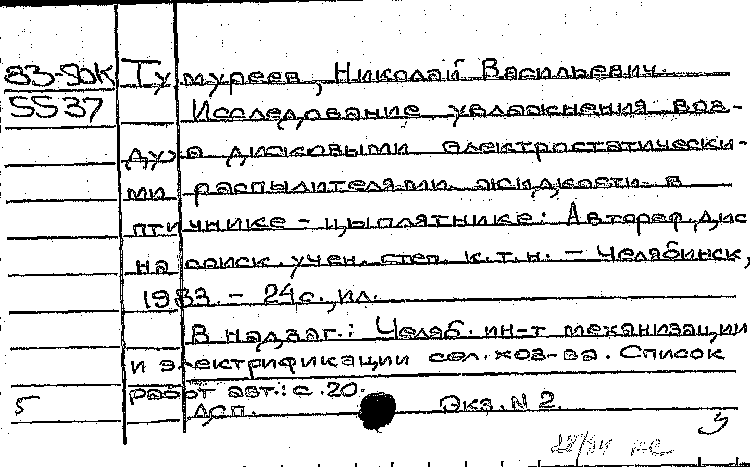 83-50К Тумуреев, Николай Васильевич.
5537 Исследование увлажнения воз-
духа дисковыми электростатически-
ми распылителями жидкости в
птичнике - цыплятнике: Автореф. дис
на соиск. учен. степ. к.т.н. - Челябинск,
1983. - 24с., ил.
В надзаг.: Челяб. ин-т механизации
и электрификации сел. хоз-ва. Список
работ авт.: с. 20.
5 ДСП. Экз. N 2.